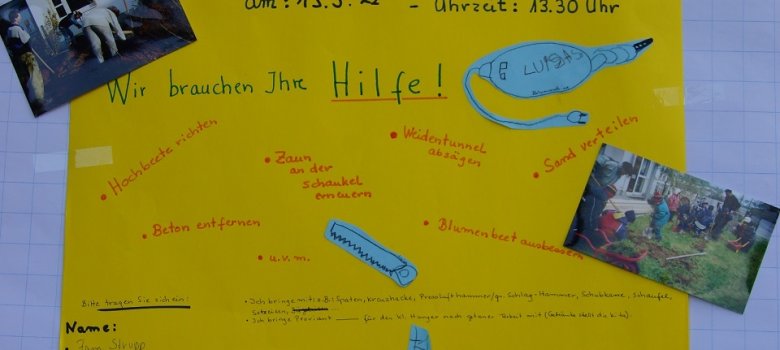 am: 13.5. - Uhrzeit: 13.30 Uhr
Wir brauchen Ihre Hilfe!
LUKAS
• Hochbeete richten
• Zaun
an der
schaukel
erneuern
• Weidentunnel
absägen
• Sand verteilen
• Beton entfernen
• Blumenbeet ausbessern
• u.v.m.
Bitte tragen Sie sich ein:
• Ich bringe mit: z.B. Spaten, Kreuzhacke, Presslufthammer/gr. Schlag-Hammer, Schubkarre, Schaufel,
• Ich bringe Proviant ____ für den kl. Hunger nach getaner Arbeit mit (Getränke stellt die
Name: